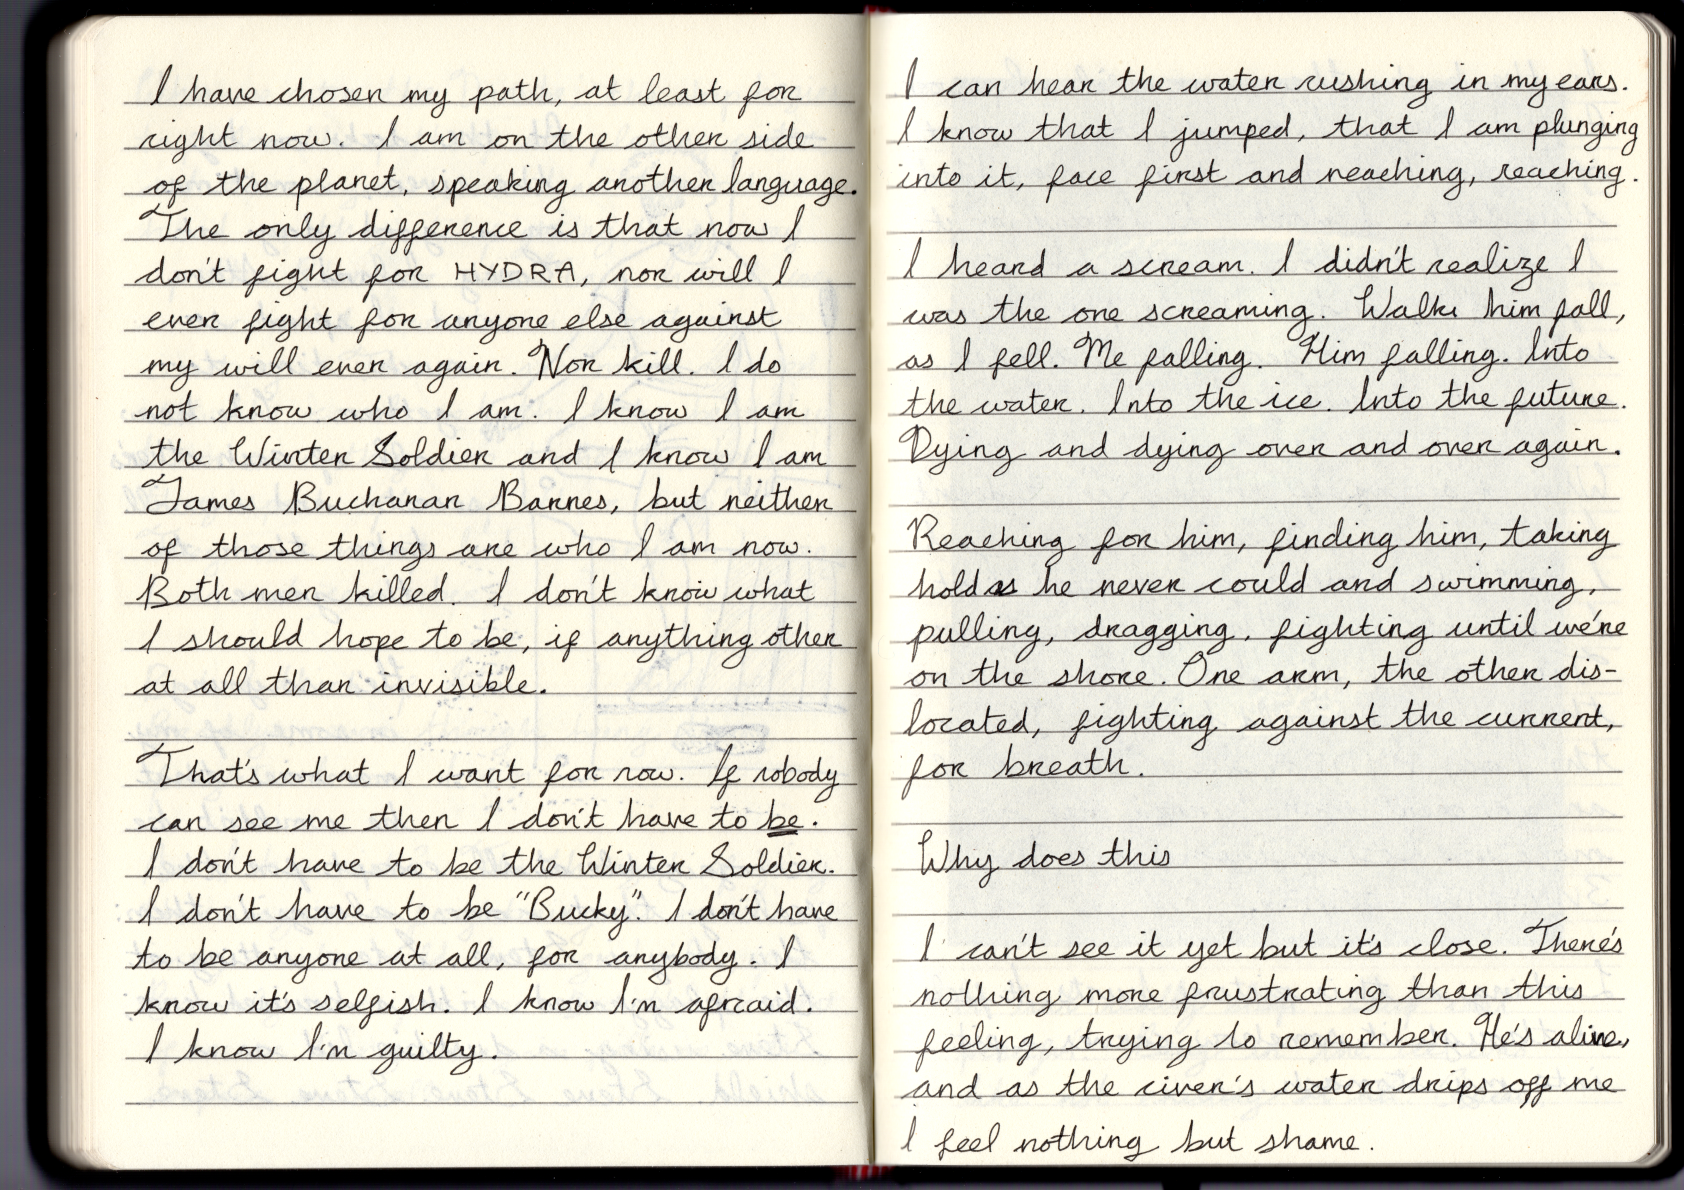 I have chosen my path, at least for
right now. I am on the other side
of the planet, speaking another language.
The only difference is that now I
don't fight for HYDRA, nor will I
ever fight for anyone else against
my will ever again. Nor kill. I do
not know who I am. I know I am
the Winter Soldier and I know I am
James Buchanan Barnes, but neither
of those things are who I am now.
Both men killed. I don't know what
I should hope to be, if anything other
at all than invisible.
That's what I want for now. If nobody
can see me then I don't have to be.
I don't have to be the Winter Soldier.
I don't have to be "Bucky". I don't have
to be anyone at all, for anybody. I
know it's selfish. I know I'm afraid.
I know I'm guilty.
I can hear the water rushing in my ears.
I know that I jumped, that I am plunging
into it, face first and reaching, reaching.
I heard a scream. I didn't realize I
was the one screaming. him fall,
as I fell. Me falling. Him falling. Into
the water. Into the ice. Into the future.
Dying and dying over and over again.
Reaching for him, finding him, taking
hold as he never could and swimming,
pulling, dragging, fighting until we're
on the shore. One arm, the other dis-
located, fighting against the current,
for breath.
Why does this
I can't see it yet but it's close. There's
nothing more frustrating than this
feeling, trying to remember. He's alive,
and as the river's water drips off me
I feel nothing but shame.